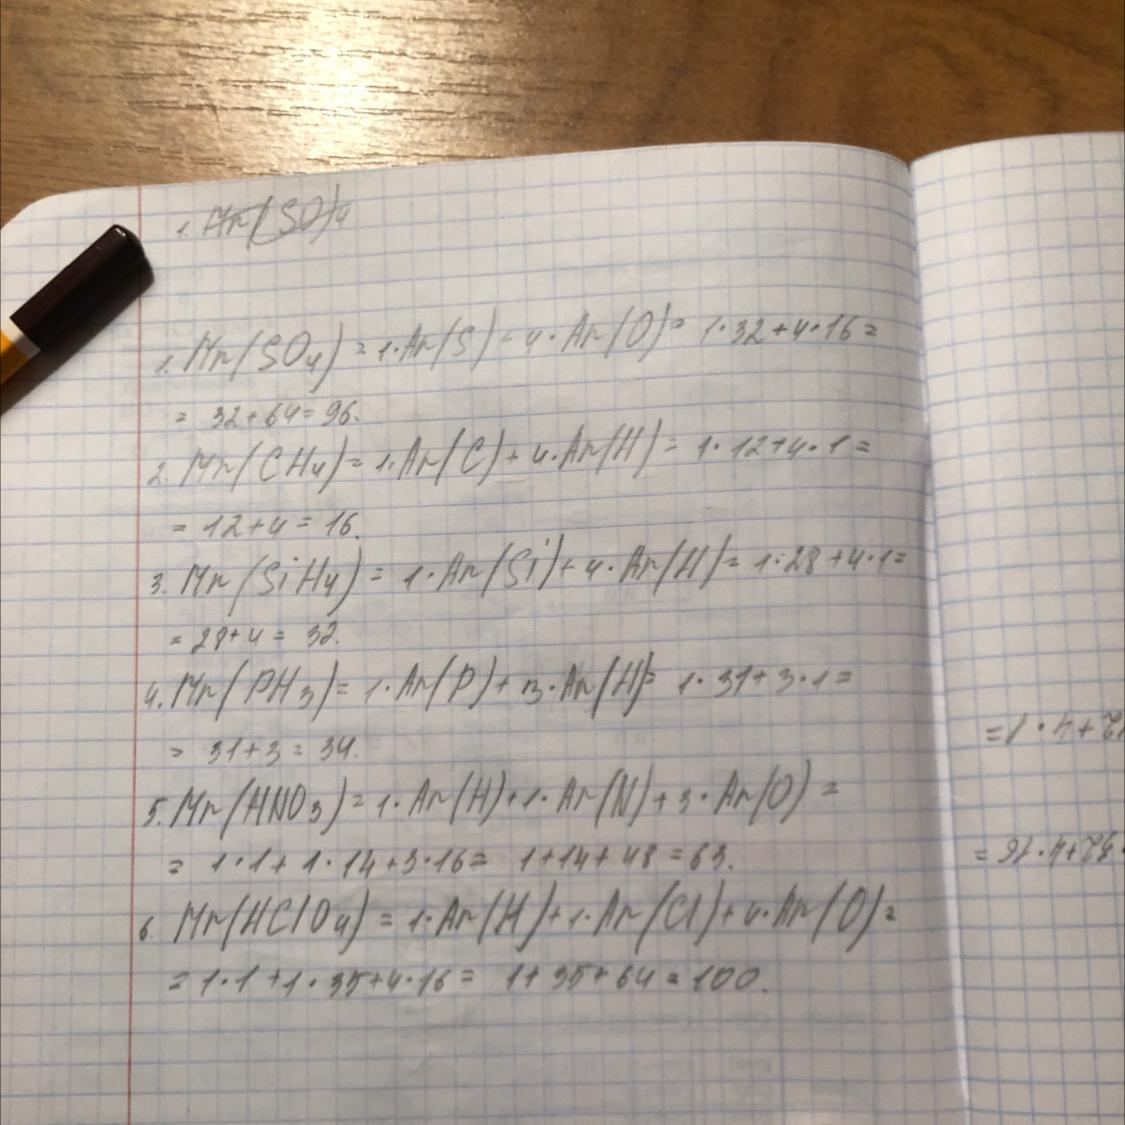 1. Mr(SO)4
1. Mr(SO4) = 1·Ar(S) + 4·Ar(O) = 1·32+4·16 =
= 32+64=96.
2. Mr(CH4) = 1·Ar(C) + 4·Ar(H) = 1·12+4·1 =
= 12+4 = 16.
3. Mr(SiH4) = 1·Ar(Si) + 4·Ar(H) = 1·28+4·1=
= 28+4 = 32.
4. Mr(PH3) = 1·Ar(P) + 3·Ar(H) = 1·31+3·1=
= 31+3 = 34.
5. Mr(HNO3) = 1·Ar(H)+1·Ar(N)+3·Ar(O) =
= 1·1+1·14+3·16= 1+14+48=63.
6. Mr(HClO4) = 1·Ar(H)+1·Ar(Cl)+4·Ar(O)=
= 1·1+1·35+4·16= 1+35+64=100.
12+4·1=
32+4·16=